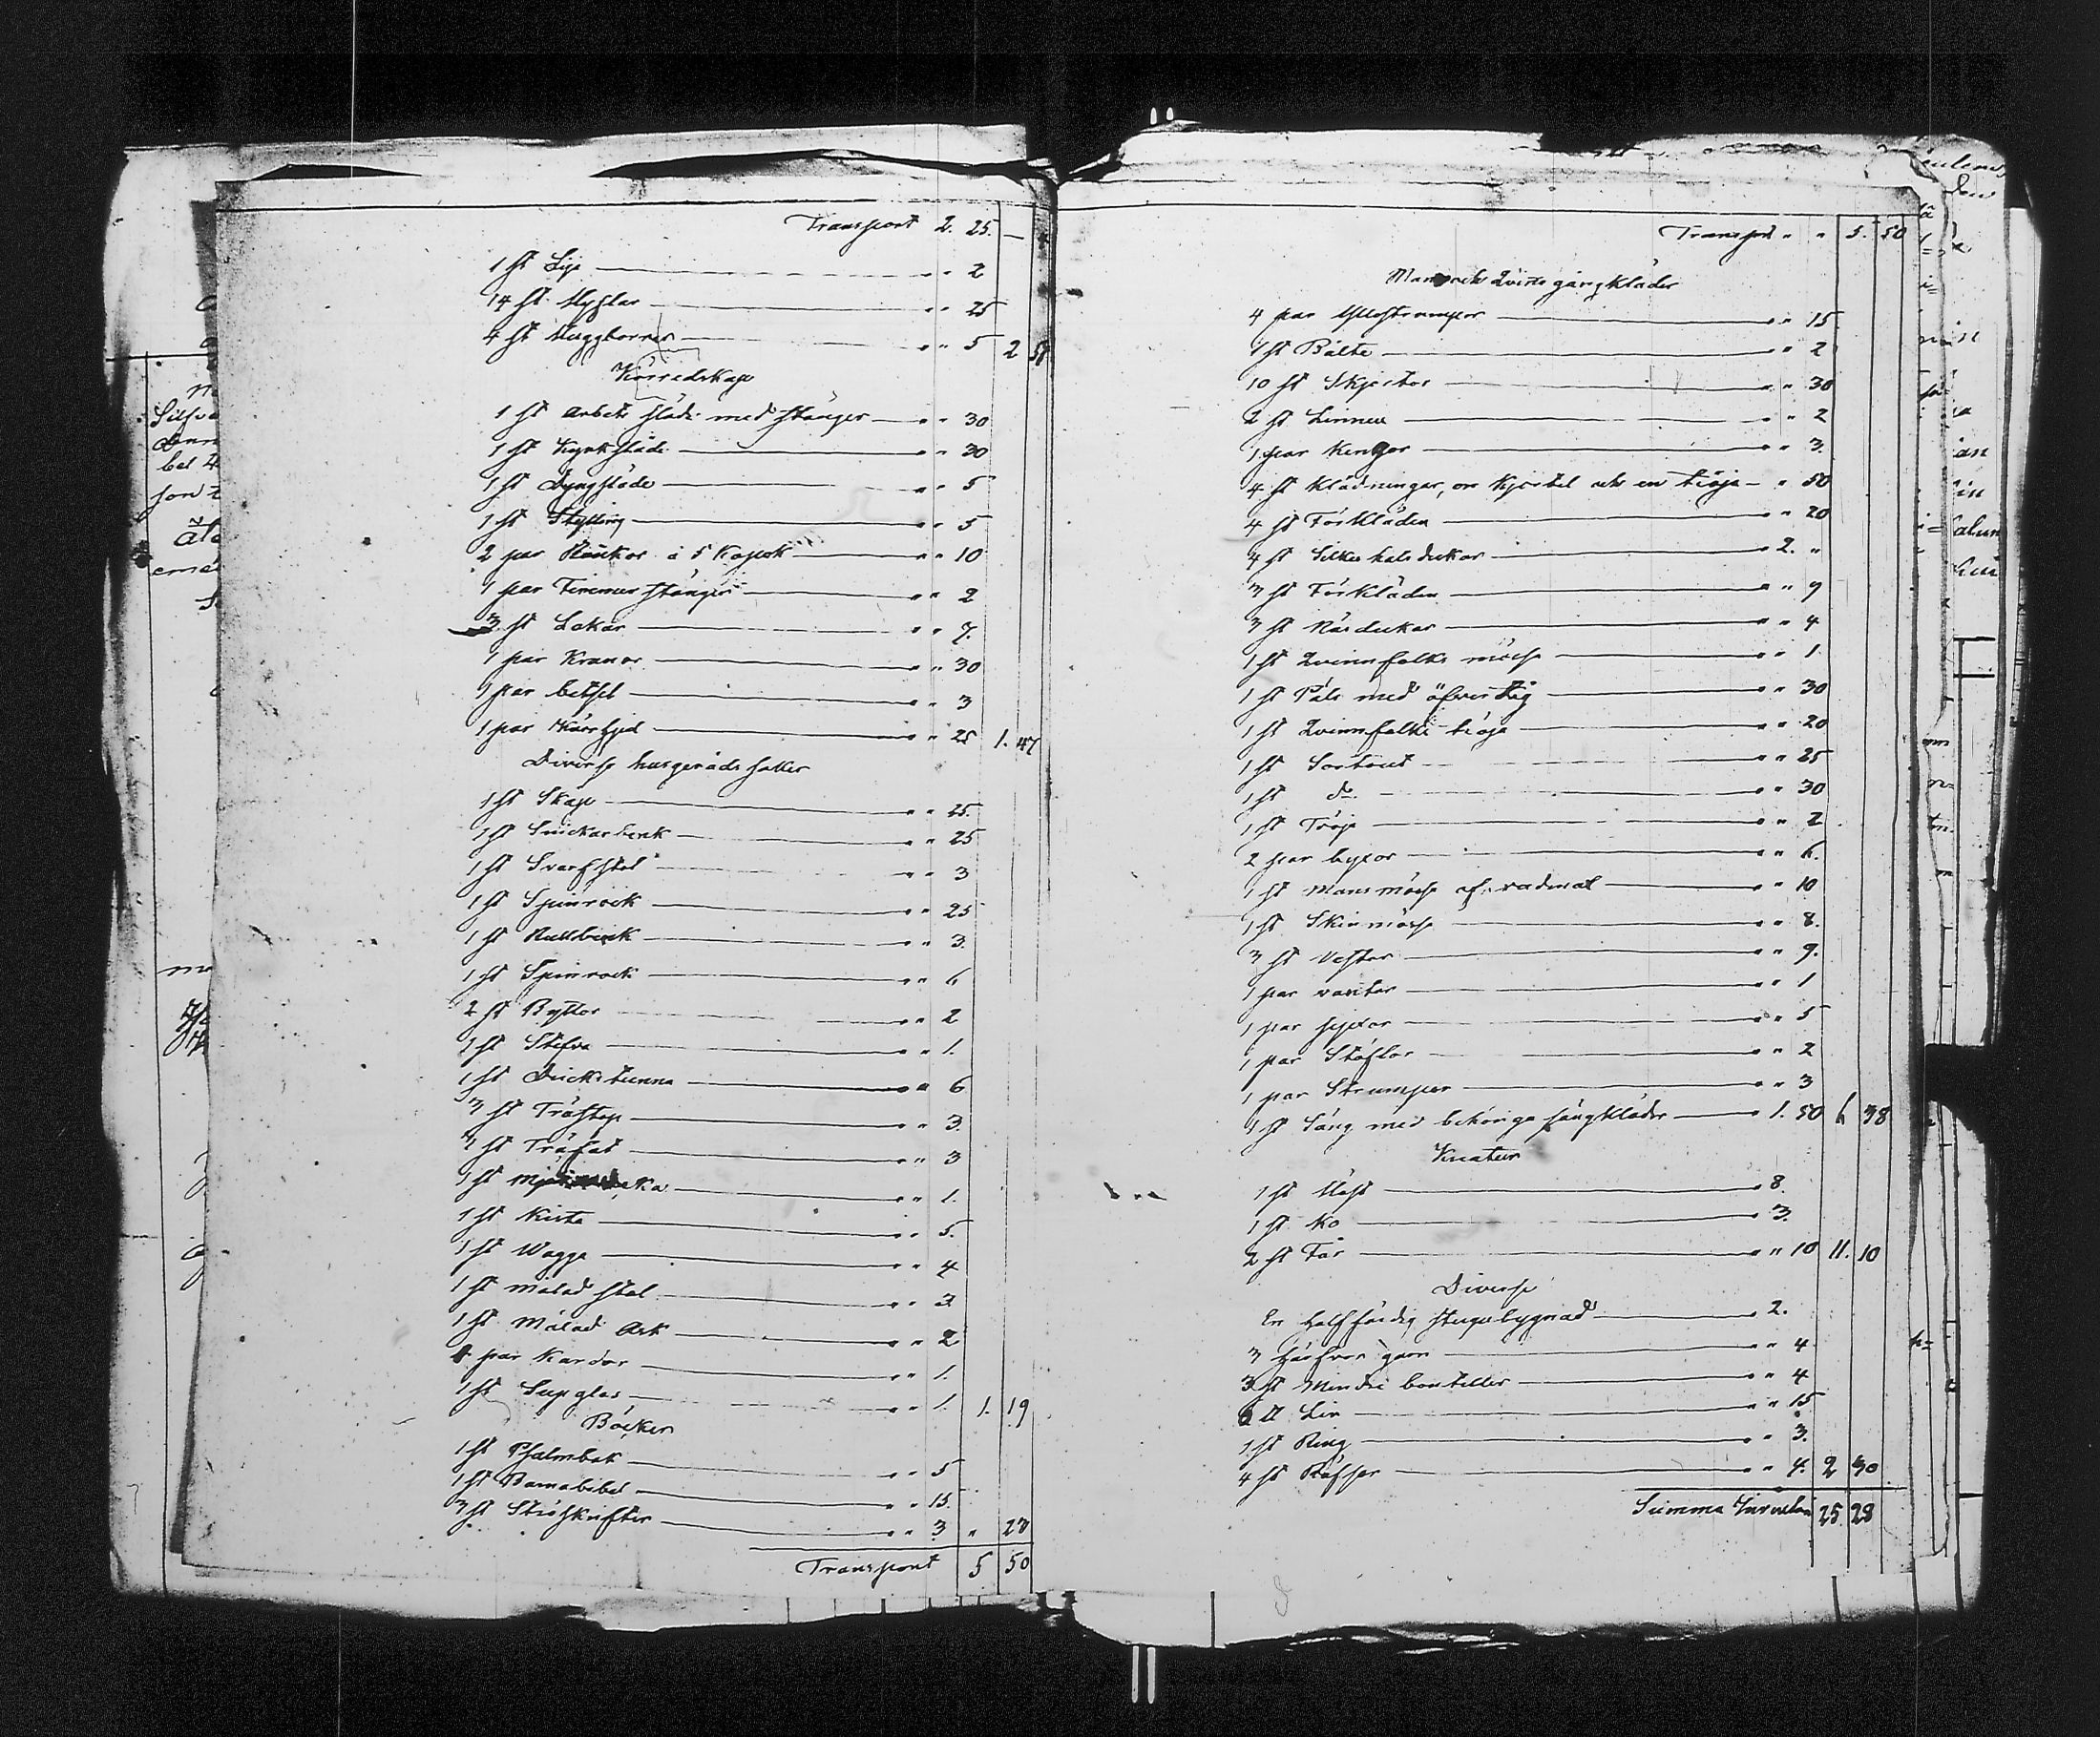 Transport 2. 25. —
1 st Lije " " 2
14 st Hyflar " " 25
4 st Huggborrer " " 5 2 57
Körredskap
1 st Arbets släde med stänger " " 30
1 st Kyrksläde " " 30
1 st Dyngsläde " " 5
1 st Stytting " " 5
2 par Rankor à 5 Kopek " " 10
1 par Timmer stänger " " 2
3 st Lokar " " 7.
1 par Kranor " " 30
1 par betsel " " 3
1 par Kärrhjul " " 25 1. 47
Diverse husgeråds saker
1 st Skåp " " 25.
1 st Snickarbenk " " 25
1 st Svarfstol " " 3
1 st Spinrock " " 25
1 st Rullbenk " " 3.
1 st Spinrock " " 6
2 st Byttor " " 2
1 st Stefva " " 1.
1 st Drickstunna " " 6
3 st Trästop " " 3.
3 st Träfat " " 3
1 st " " 1.
1 st Kista " " 5.
1 st Wagga " " 4
1 st målad stol " " 3
1 st Målad Ask " " 2
par Kardor " " 1.
1 st Supglas " " 1. 1. 19
Böcker
1 st Psalmbok " " 5
1 st Barnabibel " " 15.
3 st Ströskrifter " " 3 " 27
Transport 5 50
Transport " " 5. 50
Mans och Qvins gångkläder
4 par Yllestrumpor " " 15
1 st Bälte " " 2
10 st Skjortor " " 30
2 st Linnen " " 2
1 par Kengor " " 3.
4 st Klädningar, en Kjortel och en tröja " 50
4 st Förkläden " " 20
4 st Silkes halsdukar " 2. "
3 st Förkläden " " 9
3 st Näsdukar " " 4
1 st Qvinnfolks mössa " " 1
1 st Päls med öfver tyg " " 30
1 st Qvinnfolks tröja " " 20
1 st Sortout " " 25
1 st do " " 30
1 st Tröja " " 2
2 par byxor " " 6.
1 st Mans mössa af vadmal " " 10
1 st Skinmössa " " 8.
3 st Vestar " " 9.
1 par vantar " " 1
1 par pjexor " " 5
1 par Stöflor " " 2
1 par Strumpor " " 3
1 st Säng med behöriga sängkläder " 1. 50 6 38
Kreatur
1 st Häst " 8.
1 st Ko " 3.
2 st Får " " 10 11. 10
Diverse
En half färdig stugubygnad 2.
3 härfvor garn " " 4
3 st Mindre bouteller " " 4
℔ Lin " " 15
1 st Ring " " 3.
4 st Räfsor " " 4. 2 30
Summa Inventarii 25. 28